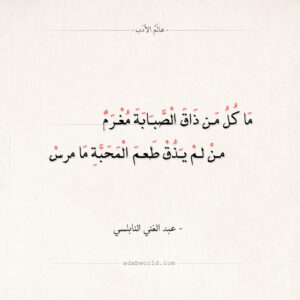 - عالَمُ الأدَب -
مَا كُلُّ مَن ذَاقَ الْصَّبَابَةَ مُغْرَمٌ
مَنْ لَمْ يَذُقْ طَعمَ الْمَحَبَّةِ مَا مرسْ
- عبد الغني النابلسي
adabworld.com